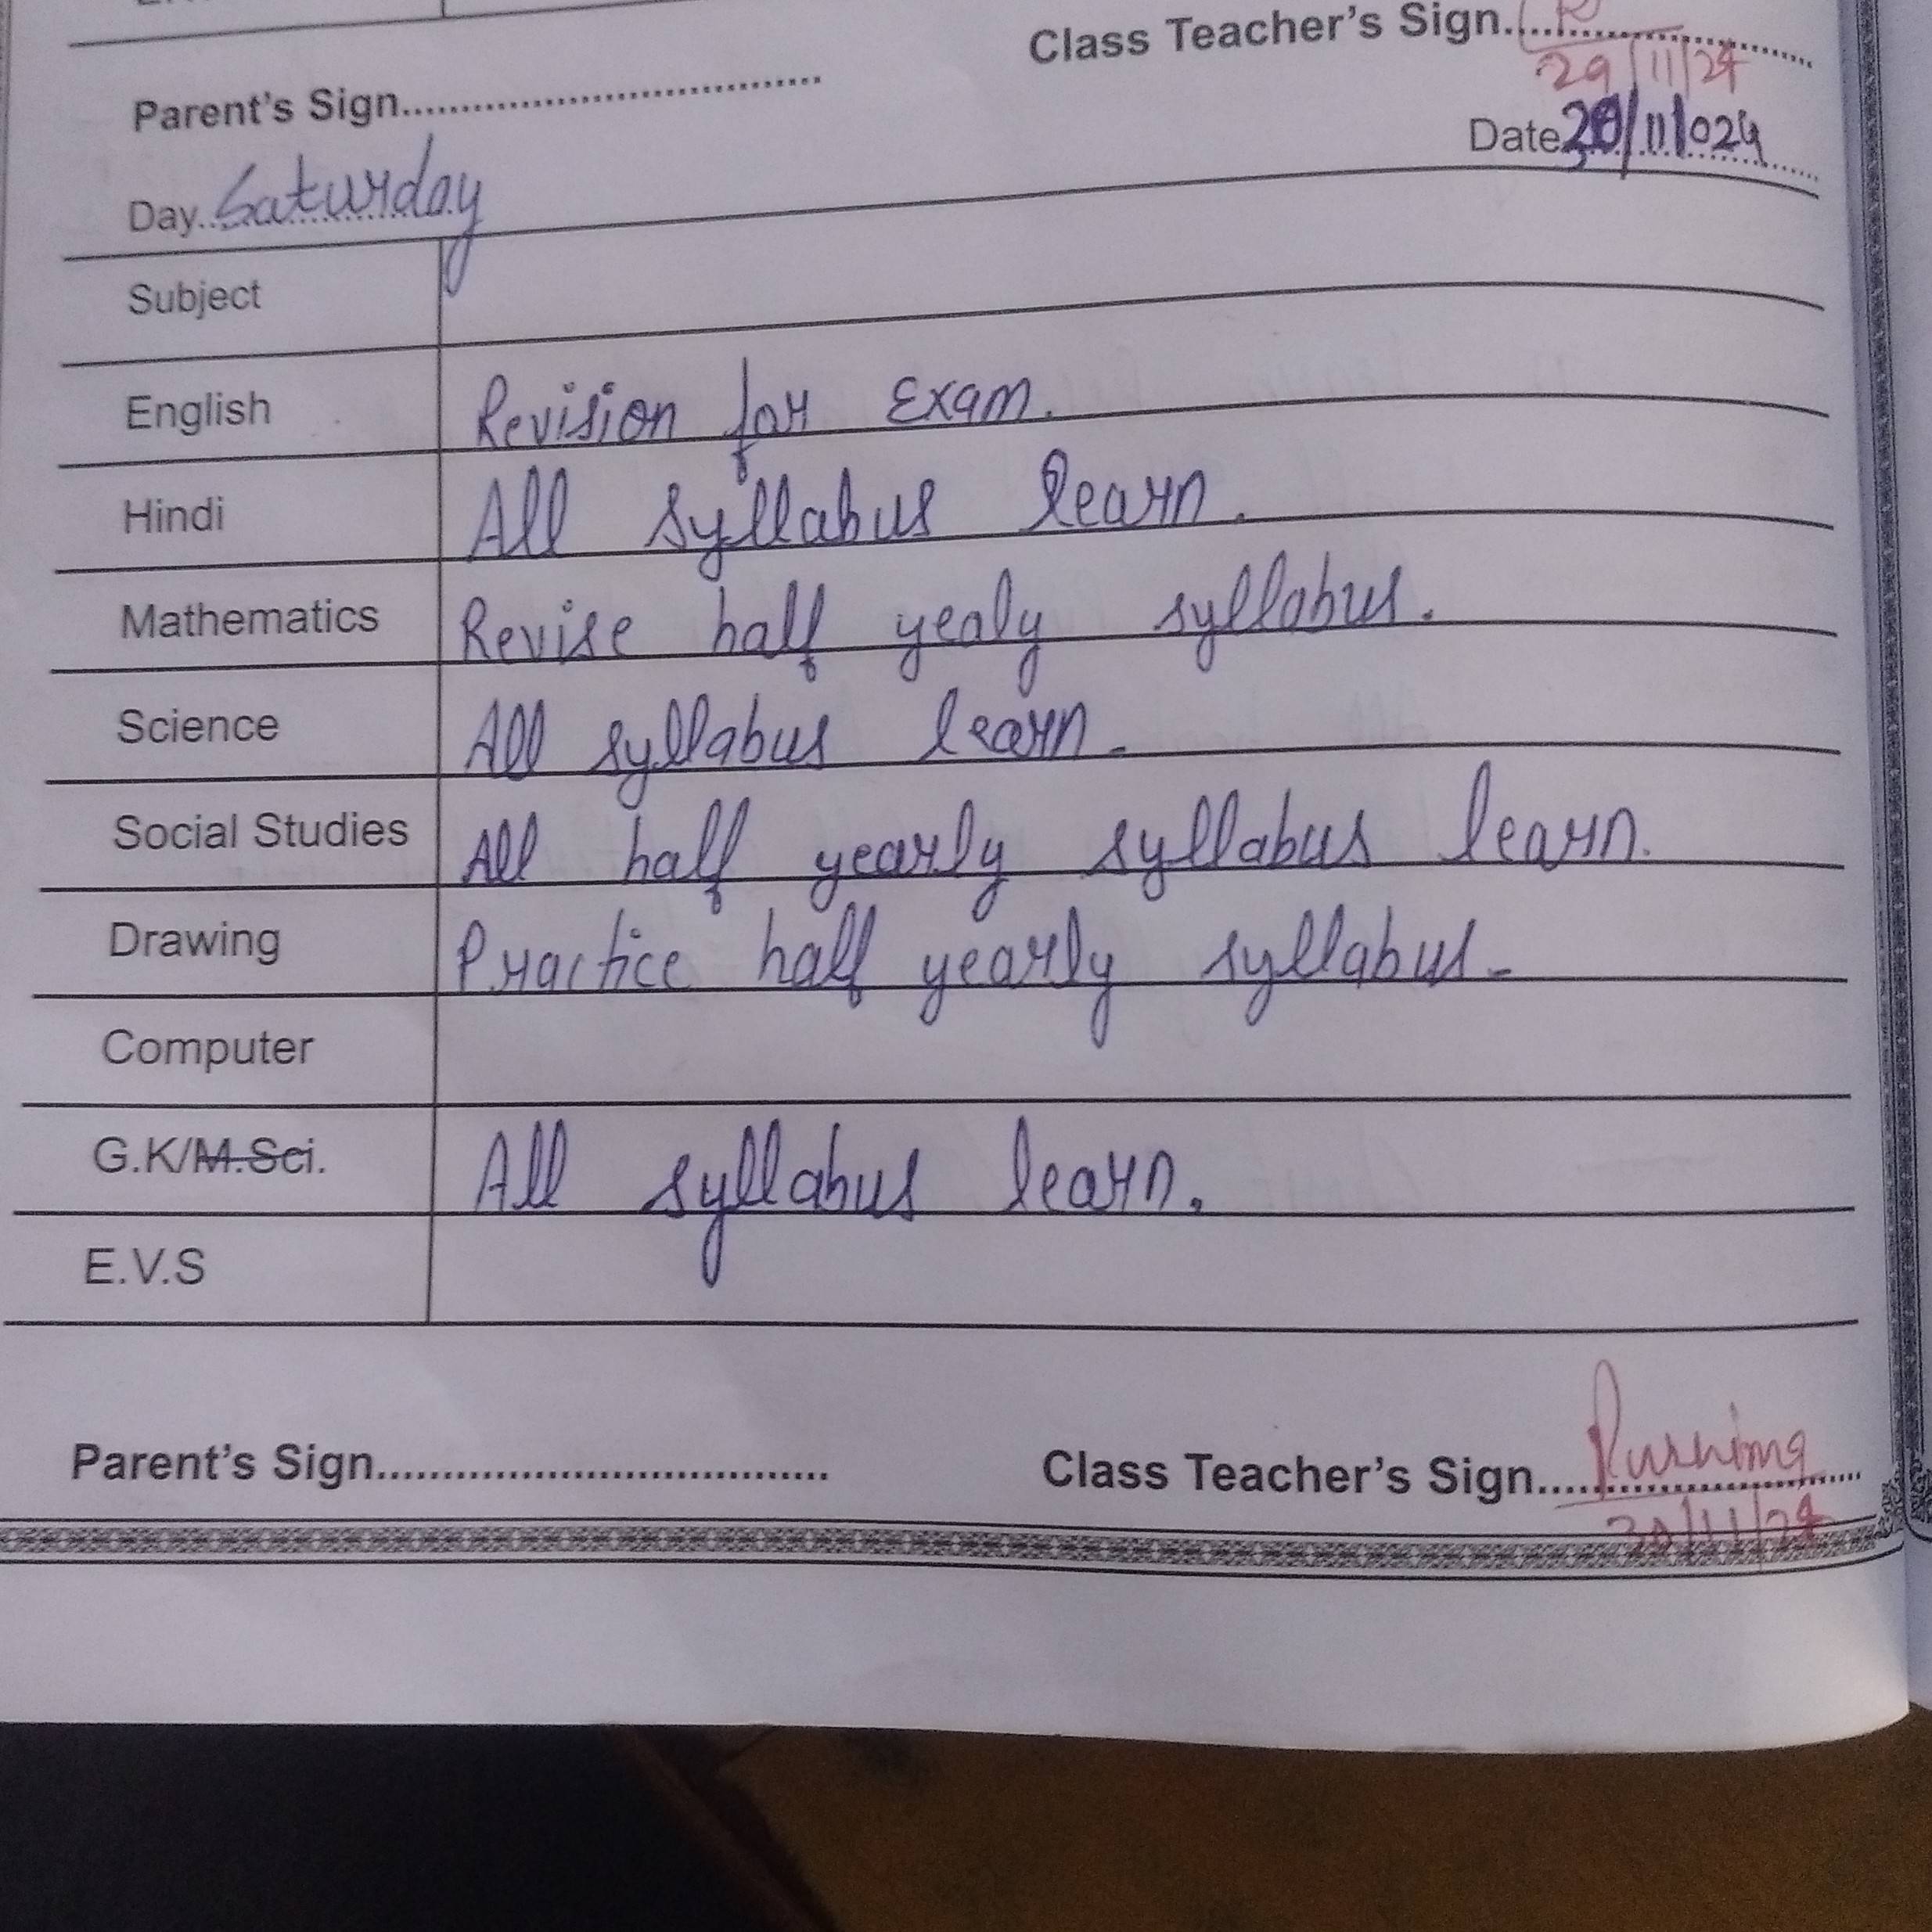 Class Teacher's Sign..............................
29/11/24
Parent's Sign....................................
Date 30/11/024
Day..Saturday
Subject
English Revision for Exam.
Hindi All syllabus learn.
Mathematics Revise half yealy syllabus.
Science All syllabus learn.
Social Studies All half yearly syllabus learn.
Drawing Practice half yearly syllabus.
Computer
G.K/M.Sci. All syllabus learn.
E.V.S
Parent's Sign....................................
Class Teacher's Sign....Purnima
30/11/24